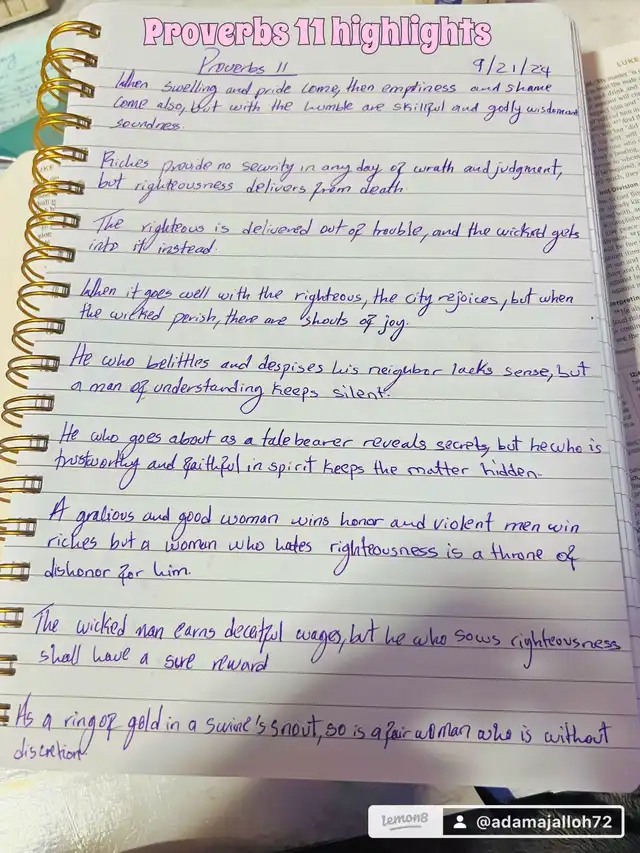 Proverbs 11 highlights
Proverbs 11
9/21/24
When swelling and pride come, then emptiness and shame
come also, but with the humble are skillful and godly wisdom and
soundness.
Riches provide no security in any day of wrath and judgment,
but righteousness delivers from death.
The righteous is delivered out of trouble, and the wicked gets
into it instead.
When it goes well with the righteous, the city rejoices, but when
the wicked perish, there are shouts of joy.
He who belittles and despises his neighbor lacks sense, but
a man of understanding keeps silent.
He who goes about as a talebearer reveals secrets, but he who is
trustworthy and faithful in spirit keeps the matter hidden.
A gracious and good woman wins honor and violent men win
riches but a woman who hates righteousness is a throne of
dishonor for him.
The wicked man earns deceitful wages, but he who sows righteousness
shall have a sure reward
As a ring of gold in a swine's snout, so is a fair woman who is without
discretion.
LUKE
lemon8
@adamajalloh72